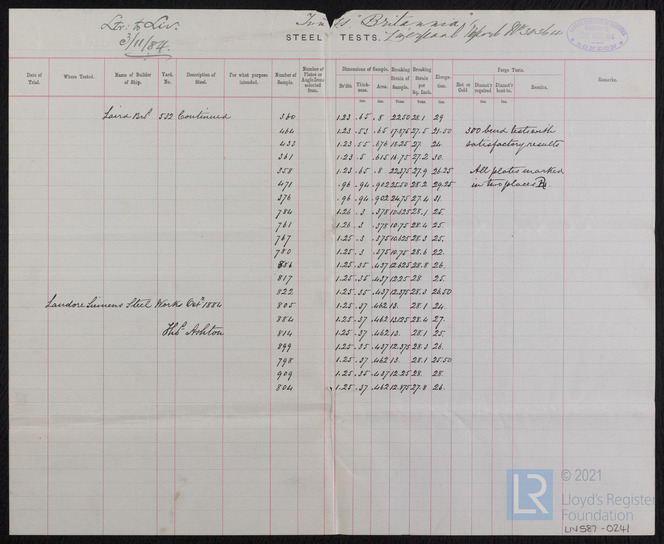 Ltr. to Liv.
3/11/84.
Twin SS "Britannia"
Liverpool Report No
STEEL TESTS.
LONDON
Date of Trial. Where Tested. Name of Builder of Ship. Yard. No. Description of Steel. For what purpose intended. Number of Sample. Number of Plates or Angle-Irons selected from. Dimensions of Sample. Br'dth. Thickness. Area. Breaking Strain of Sample. Breaking Strain per Sq. Inch. Elongation. Forge Tests. Hot or Cold Diamet'r required Diamet'r bent to. Results. Remarks.
Ins. Ins. Ins. Tons. Tons. Ins. Ins.
Laird Bros. 532 Continued 360 1.23 .65 .8 22.50 28.1 29
464 1.23 .53 .65 17.875 27.5 21.50 300 bend tests with
433 1.23 .55 .676 18.25 27 24. satisfactory results
361 1.23 .5 .615 16.75 27.2 30.
358 1.23 .65 .8 22.375 27.9 26.25 All plates marked
471 .96 .94 .902 25.50 28.2 29.25 in two places
376 .96 .94 .902 24.75 27.4 31.
784 1.26 .3 .378 10.625 28.1 25.
761 1.26 .3 .378 10.75 28.4 25.
767 1.25 .3 .375 10.625 28.3 25.
780 1.25 .3 .375 10.75 28.6 22.
886 1.25 .35 .437 12.625 28.8 26.
817 1.25 .35 .437 12.25 28 25.
822 1.25 .35 .437 12.375 28.3 26.50
Landore Siemens Steel Works Octr 1884 805 1.25 .37 .462 13. 28.1 24.
884 1.25 .37 .462 13.125 28.4 27.
Thos. Ashton 814 1.25 .37 .462 13. 28.1 25.
899 1.25 .35 .437 12.375 28.3 26.
798 1.25 .37 .462 13. 28.1 25.50
909 1.25 .35 .437 12.25 28. 28.
804 1.25 .37 .462 12.875 27.8 26.
LR
© 2021
Lloyd's Register
Foundation
LNS87-0241